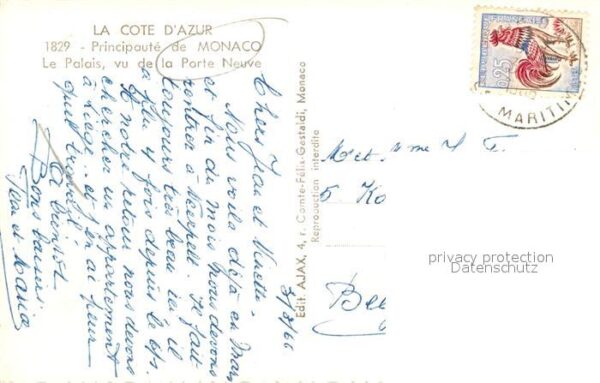 LA COTE D'AZUR
1829 - Principauté de MONACO
Le Palais, vu de la Porte Neuve
3/3/66
Chers Jean et
Nous voilà déjà en Mars
et fin du mois nous devons
rentrer à Il fait
toujours très beau ici, il
a plu 4 fois depuis le
A notre retour nous devons
chercher un appartement
à Liège et j'en ai peur
quel travail
A bientôt
Bons baisers
Jean et Maria
Edit. AJAX, 4, r. Comte-Félix-Gastaldi, Monaco
Reproduction interdite
0,25
MARITI
M et Mme
5
privacy protection
Datenschutz